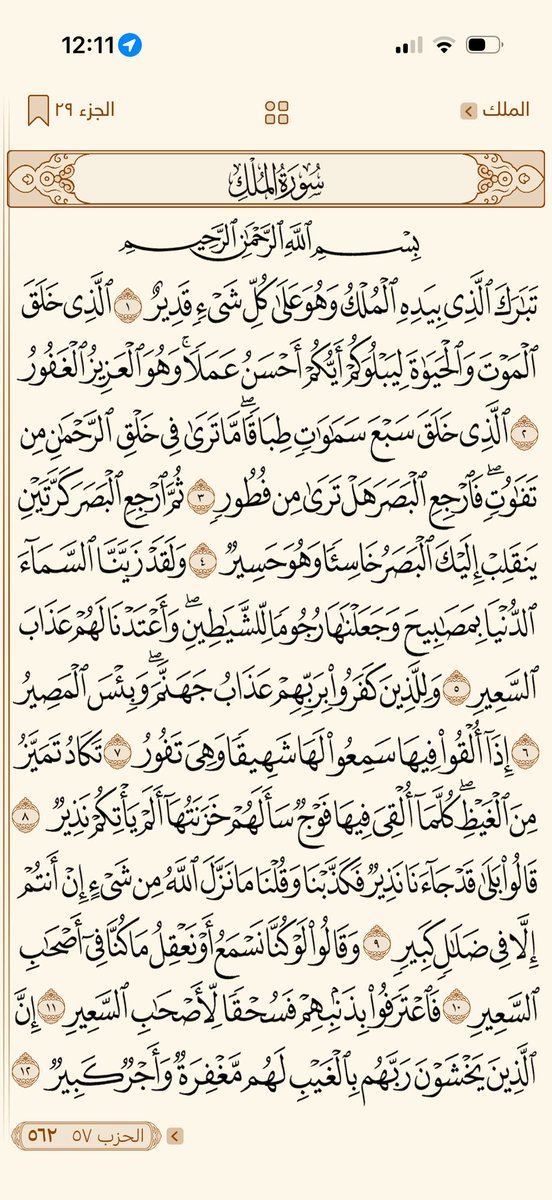 12:11
الملك
الجزء ٢٩
سُورَةُ الْمُلْكِ
بِسْمِ ٱللَّهِ ٱلرَّحْمَٰنِ ٱلرَّحِيمِ
تَبَٰرَكَ ٱلَّذِى بِيَدِهِ ٱلْمُلْكُ وَهُوَ عَلَىٰ كُلِّ شَىْءٍ قَدِيرٌ ١ ٱلَّذِى خَلَقَ
ٱلْمَوْتَ وَٱلْحَيَوٰةَ لِيَبْلُوَكُمْ أَيُّكُمْ أَحْسَنُ عَمَلًا ۚ وَهُوَ ٱلْعَزِيزُ ٱلْغَفُورُ
٢ ٱلَّذِى خَلَقَ سَبْعَ سَمَٰوَٰتٍ طِبَاقًا ۖ مَّا تَرَىٰ فِى خَلْقِ ٱلرَّحْمَٰنِ مِن
تَفَٰوُتٍ ۖ فَٱرْجِعِ ٱلْبَصَرَ هَلْ تَرَىٰ مِن فُطُورٍ ٣ ثُمَّ ٱرْجِعِ ٱلْبَصَرَ كَرَّتَيْنِ
يَنقَلِبْ إِلَيْكَ ٱلْبَصَرُ خَاسِئًا وَهُوَ حَسِيرٌ ٤ وَلَقَدْ زَيَّنَّا ٱلسَّمَآءَ
ٱلدُّنْيَا بِمَصَٰبِيحَ وَجَعَلْنَٰهَا رُجُومًا لِّلشَّيَٰطِينِ ۖ وَأَعْتَدْنَا لَهُمْ عَذَابَ
ٱلسَّعِيرِ ٥ وَلِلَّذِينَ كَفَرُوا۟ بِرَبِّهِمْ عَذَابُ جَهَنَّمَ ۖ وَبِئْسَ ٱلْمَصِيرُ
٦ إِذَآ أُلْقُوا۟ فِيهَا سَمِعُوا۟ لَهَا شَهِيقًا وَهِىَ تَفُورُ ٧ تَكَادُ تَمَيَّزُ
مِنَ ٱلْغَيْظِ ۖ كُلَّمَآ أُلْقِىَ فِيهَا فَوْجٌ سَأَلَهُمْ خَزَنَتُهَآ أَلَمْ يَأْتِكُمْ نَذِيرٌ ٨
قَالُوا۟ بَلَىٰ قَدْ جَآءَنَا نَذِيرٌ فَكَذَّبْنَا وَقُلْنَا مَا نَزَّلَ ٱللَّهُ مِن شَىْءٍ إِنْ أَنتُمْ
إِلَّا فِى ضَلَٰلٍ كَبِيرٍ ٩ وَقَالُوا۟ لَوْ كُنَّا نَسْمَعُ أَوْ نَعْقِلُ مَا كُنَّا فِىٓ أَصْحَٰبِ
ٱلسَّعِيرِ ١٠ فَٱعْتَرَفُوا۟ بِذَنۢبِهِمْ فَسُحْقًا لِّأَصْحَٰبِ ٱلسَّعِيرِ ١١ إِنَّ
ٱلَّذِينَ يَخْشَوْنَ رَبَّهُم بِٱلْغَيْبِ لَهُم مَّغْفِرَةٌ وَأَجْرٌ كَبِيرٌ ١٢
الحزب ٥٧ ٥٦٢